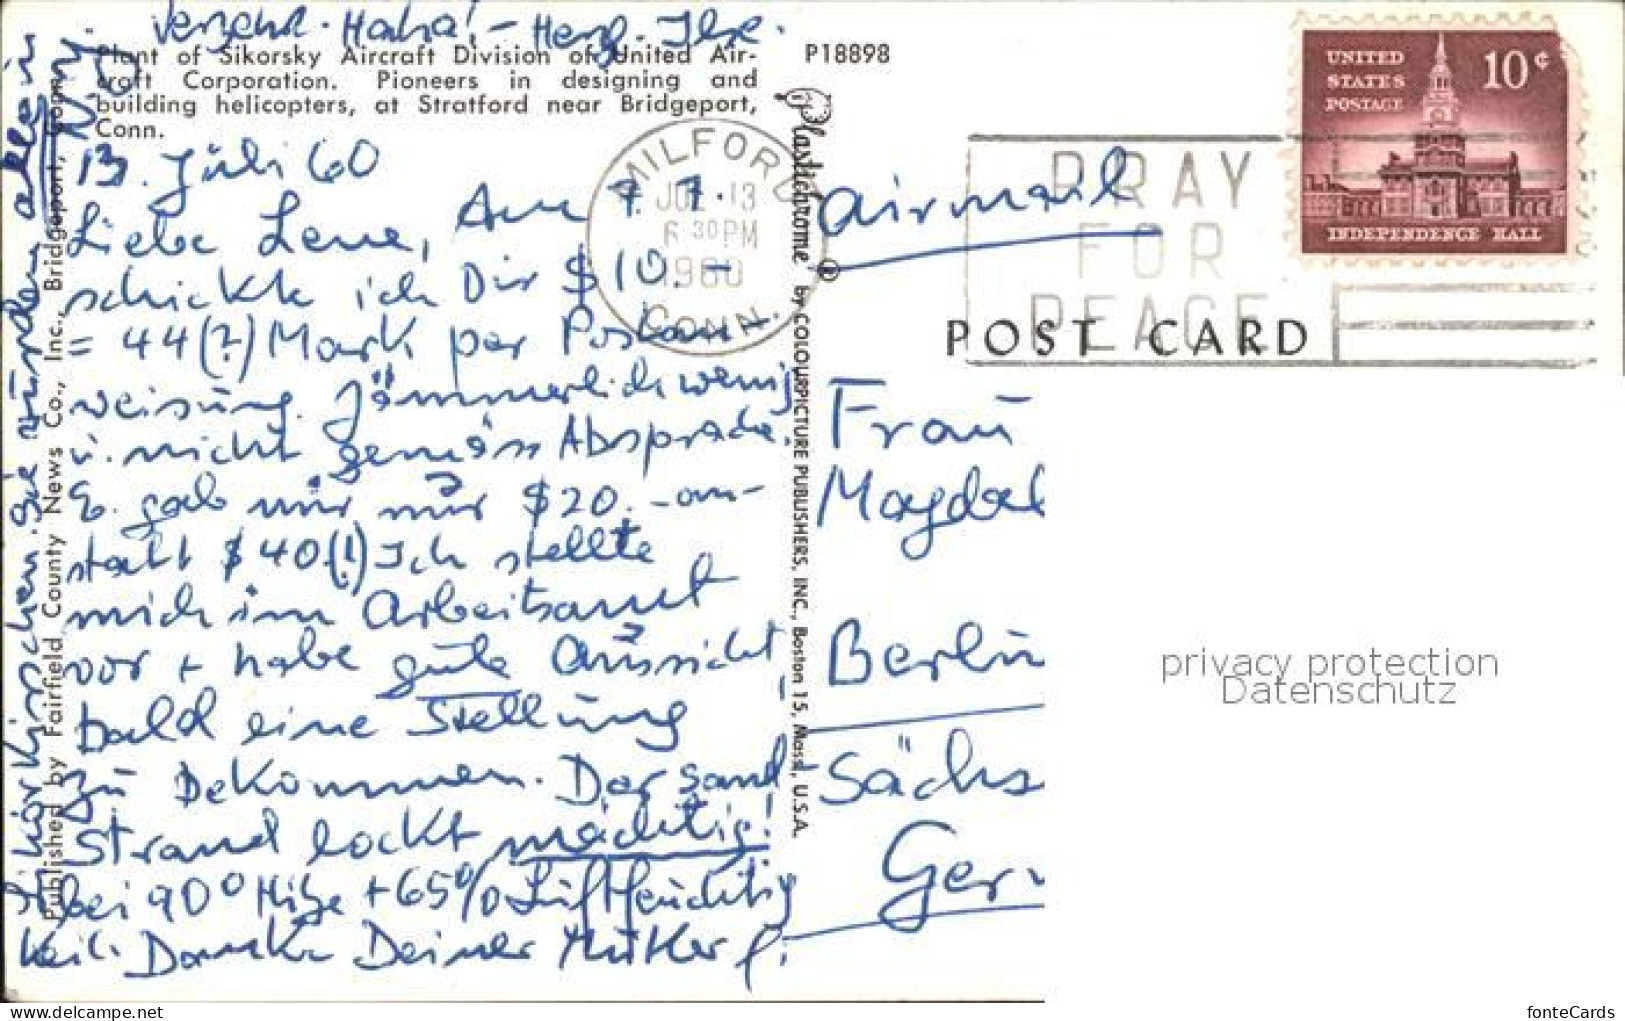 verzehrt. Haha! - Herzl. Ilse.
Plant of Sikorsky Aircraft Division of United Air-
craft Corporation. Pioneers in designing and
building helicopters, at Stratford near Bridgeport,
Conn.
P18898
13. Juli 60
Liebe Lene, Am 7. 7.
schickte ich Dir $10.-
= 44(?) Mark per Postan-
weisung. Jämmerlich wenig
u. nicht gemäss Absprache.
E. gab mir nur $20.- an-
statt $40(!) Ich stellte
mich im Arbeitsamt
vor + habe gute Aussicht
bald eine Stellung
zu bekommen. Der Sand-
strand lockt mächtig!
bei 90° Hitze + 65% Luftfeuchtig
keit. Danke Deiner Mutter f.
Sie würden allein
Published by Fairfield County News Co., Inc., Bridgeport, Conn.
Plastichrome ® by COLOURPICTURE PUBLISHERS, INC., Boston 15, Mass., U.S.A.
MILFORD
JUL 13
6 30 PM
1960
CONN.
PRAY
FOR
PEACE
UNITED
STATES
POSTAGE
10¢
INDEPENDENCE HALL
airmail
POST CARD
Frau
Magdal
Berlin
Sächs
Ger
privacy protection
Datenschutz
www.delcampe.net
fonteCards